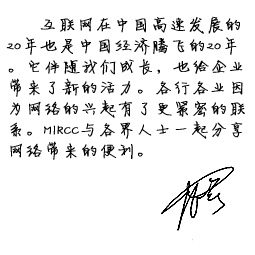 互联网在中国高速发展的
20年也是中国经济腾飞的20年
。它伴随我们成长，也给企业
带来了新的活力。各行各业因
为网络的兴起有了更紧密的联
系。MIRCC与各界人士一起分享
网络带来的便利。